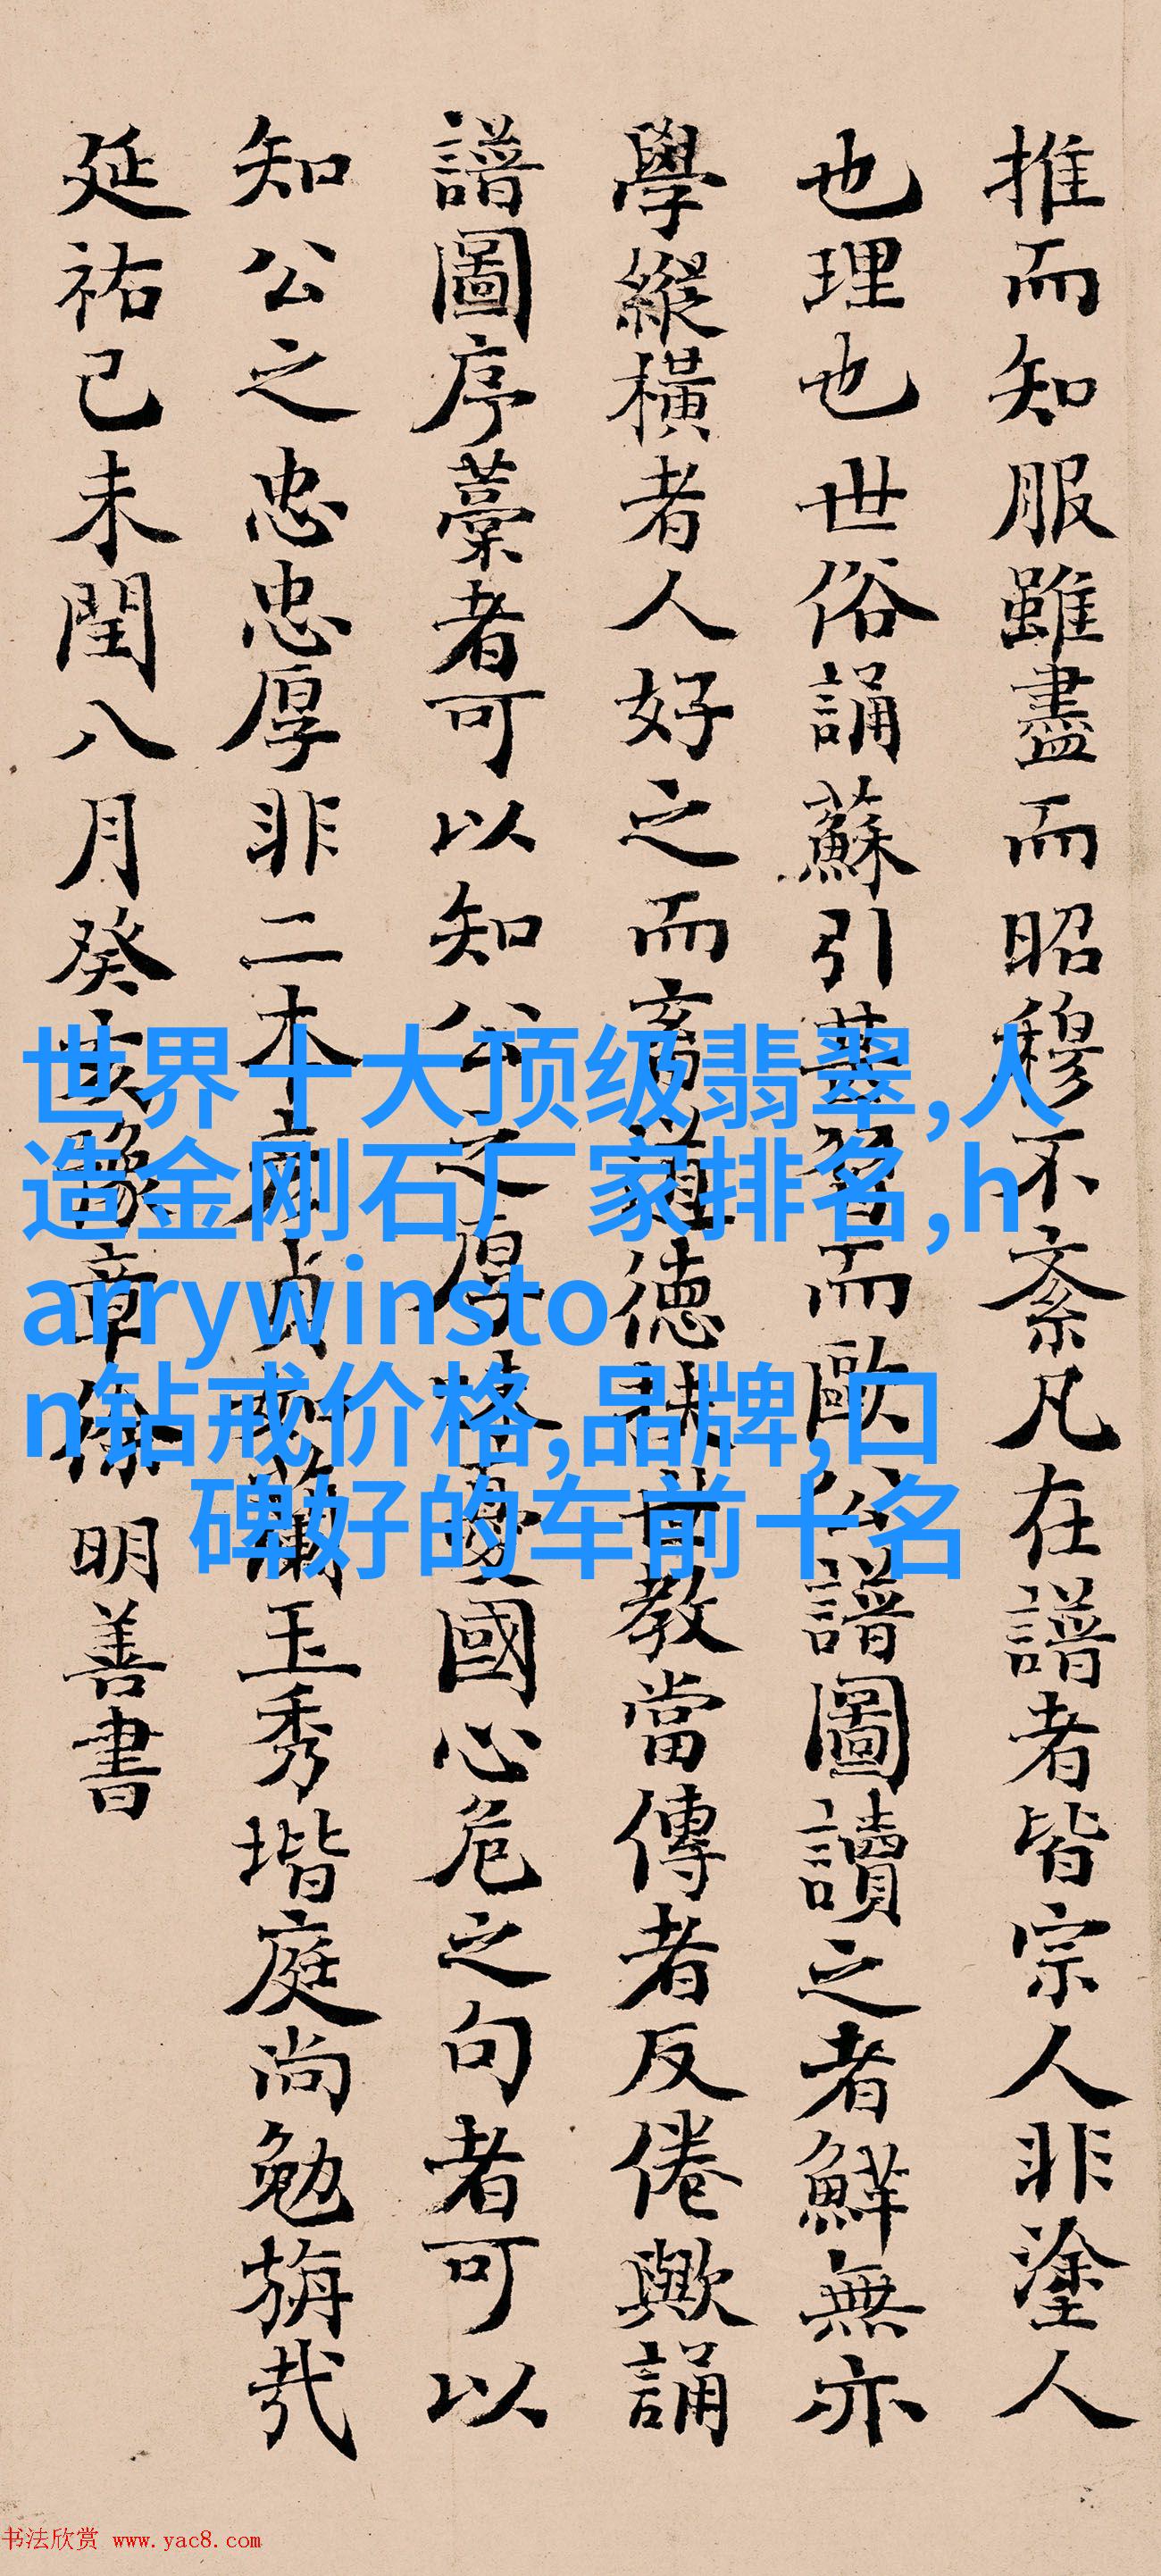 推而知服雖盡而昭穆不紊凡在譜者皆宗人非塗人
也理也世俗誦蘇引華習而歐公譜圖讀之者鮮無亦
學縱橫者人好之而畜道德裨世教當傳者反倦歟誦
譜圖序藁者可以知公之厚藁憂國心危之句者可以
知公之忠忠厚非二木有貞蘭玉秀堦庭尚勉旃哉
延祐己未閏八月癸亥豫章徐明善書
世界十大顶级翡翠,人
造金刚石厂家排名,h
arrywinsto
n钻戒价格,品牌,口
碑好的车前十名
书法欣赏 www.yac8.com